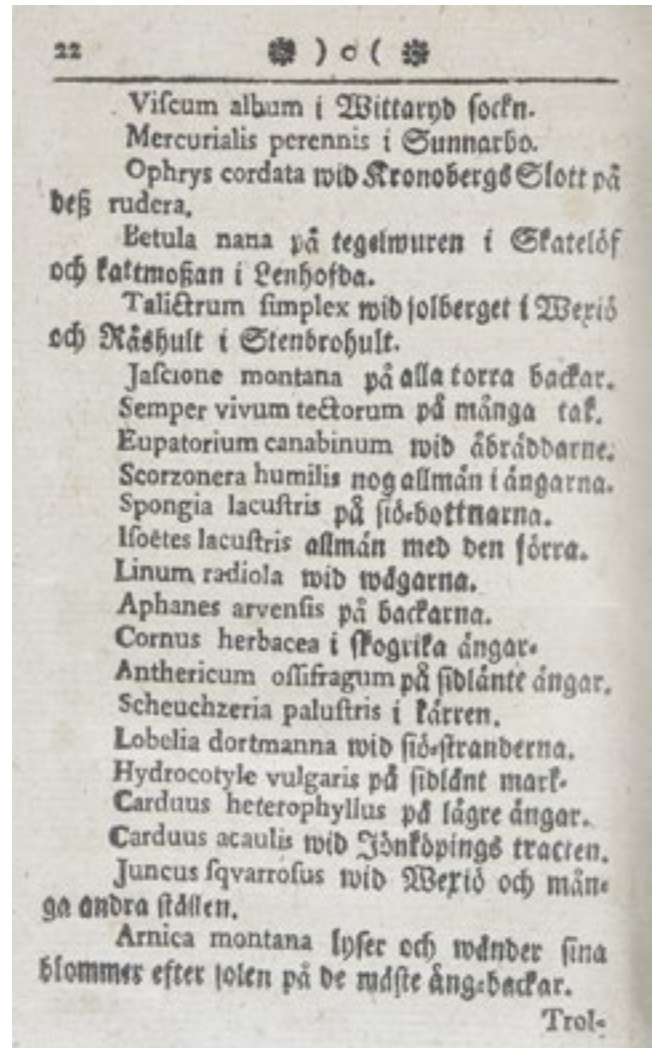 22 ❁ ) o ( ❁
Viſcum album i Wittaryd ſockn.
Mercurialis perennis i Sunnarbo.
Ophrys cordata wid Kronobergs Slott på
deß rudera.
Betula nana på tegelmuren i Skatelöf
och kattmoßan i Lenhofda.
Talictrum ſimplex wid jolberget i Wexiö
och Råshult i Stenbrohult.
Jaſcione montana på alla torra backar.
Semper vivum tectorum på många tak.
Eupatorium canabinum wid åbräddarne.
Scorzonera humilis nog allmän i ängarna.
Spongia lacuſtris på ſiö-bottnarna.
Iſoëtes lacuſtris allmän med den förra.
Linum radiola wid wägarna.
Aphanes arvenſis på backarna.
Cornus herbacea i ſkogrika ängar-
Anthericum oſſifragum på ſidlänte ängar.
Scheuchzeria paluſtris i kärren.
Lobelia dortmanna wid ſiö-ſtranderna.
Hydrocotyle vulgaris på ſidlänt mark-
Carduus heterophyllus på lägre ängar.
Carduus acaulis wid Jönköpings tracten.
Juncus ſqvarroſus wid Wexiö och mån-
ga andra ſtällen.
Arnica montana lyſer och wänder ſina
blommer efter ſolen på de mäſte äng-backar.
Trol-